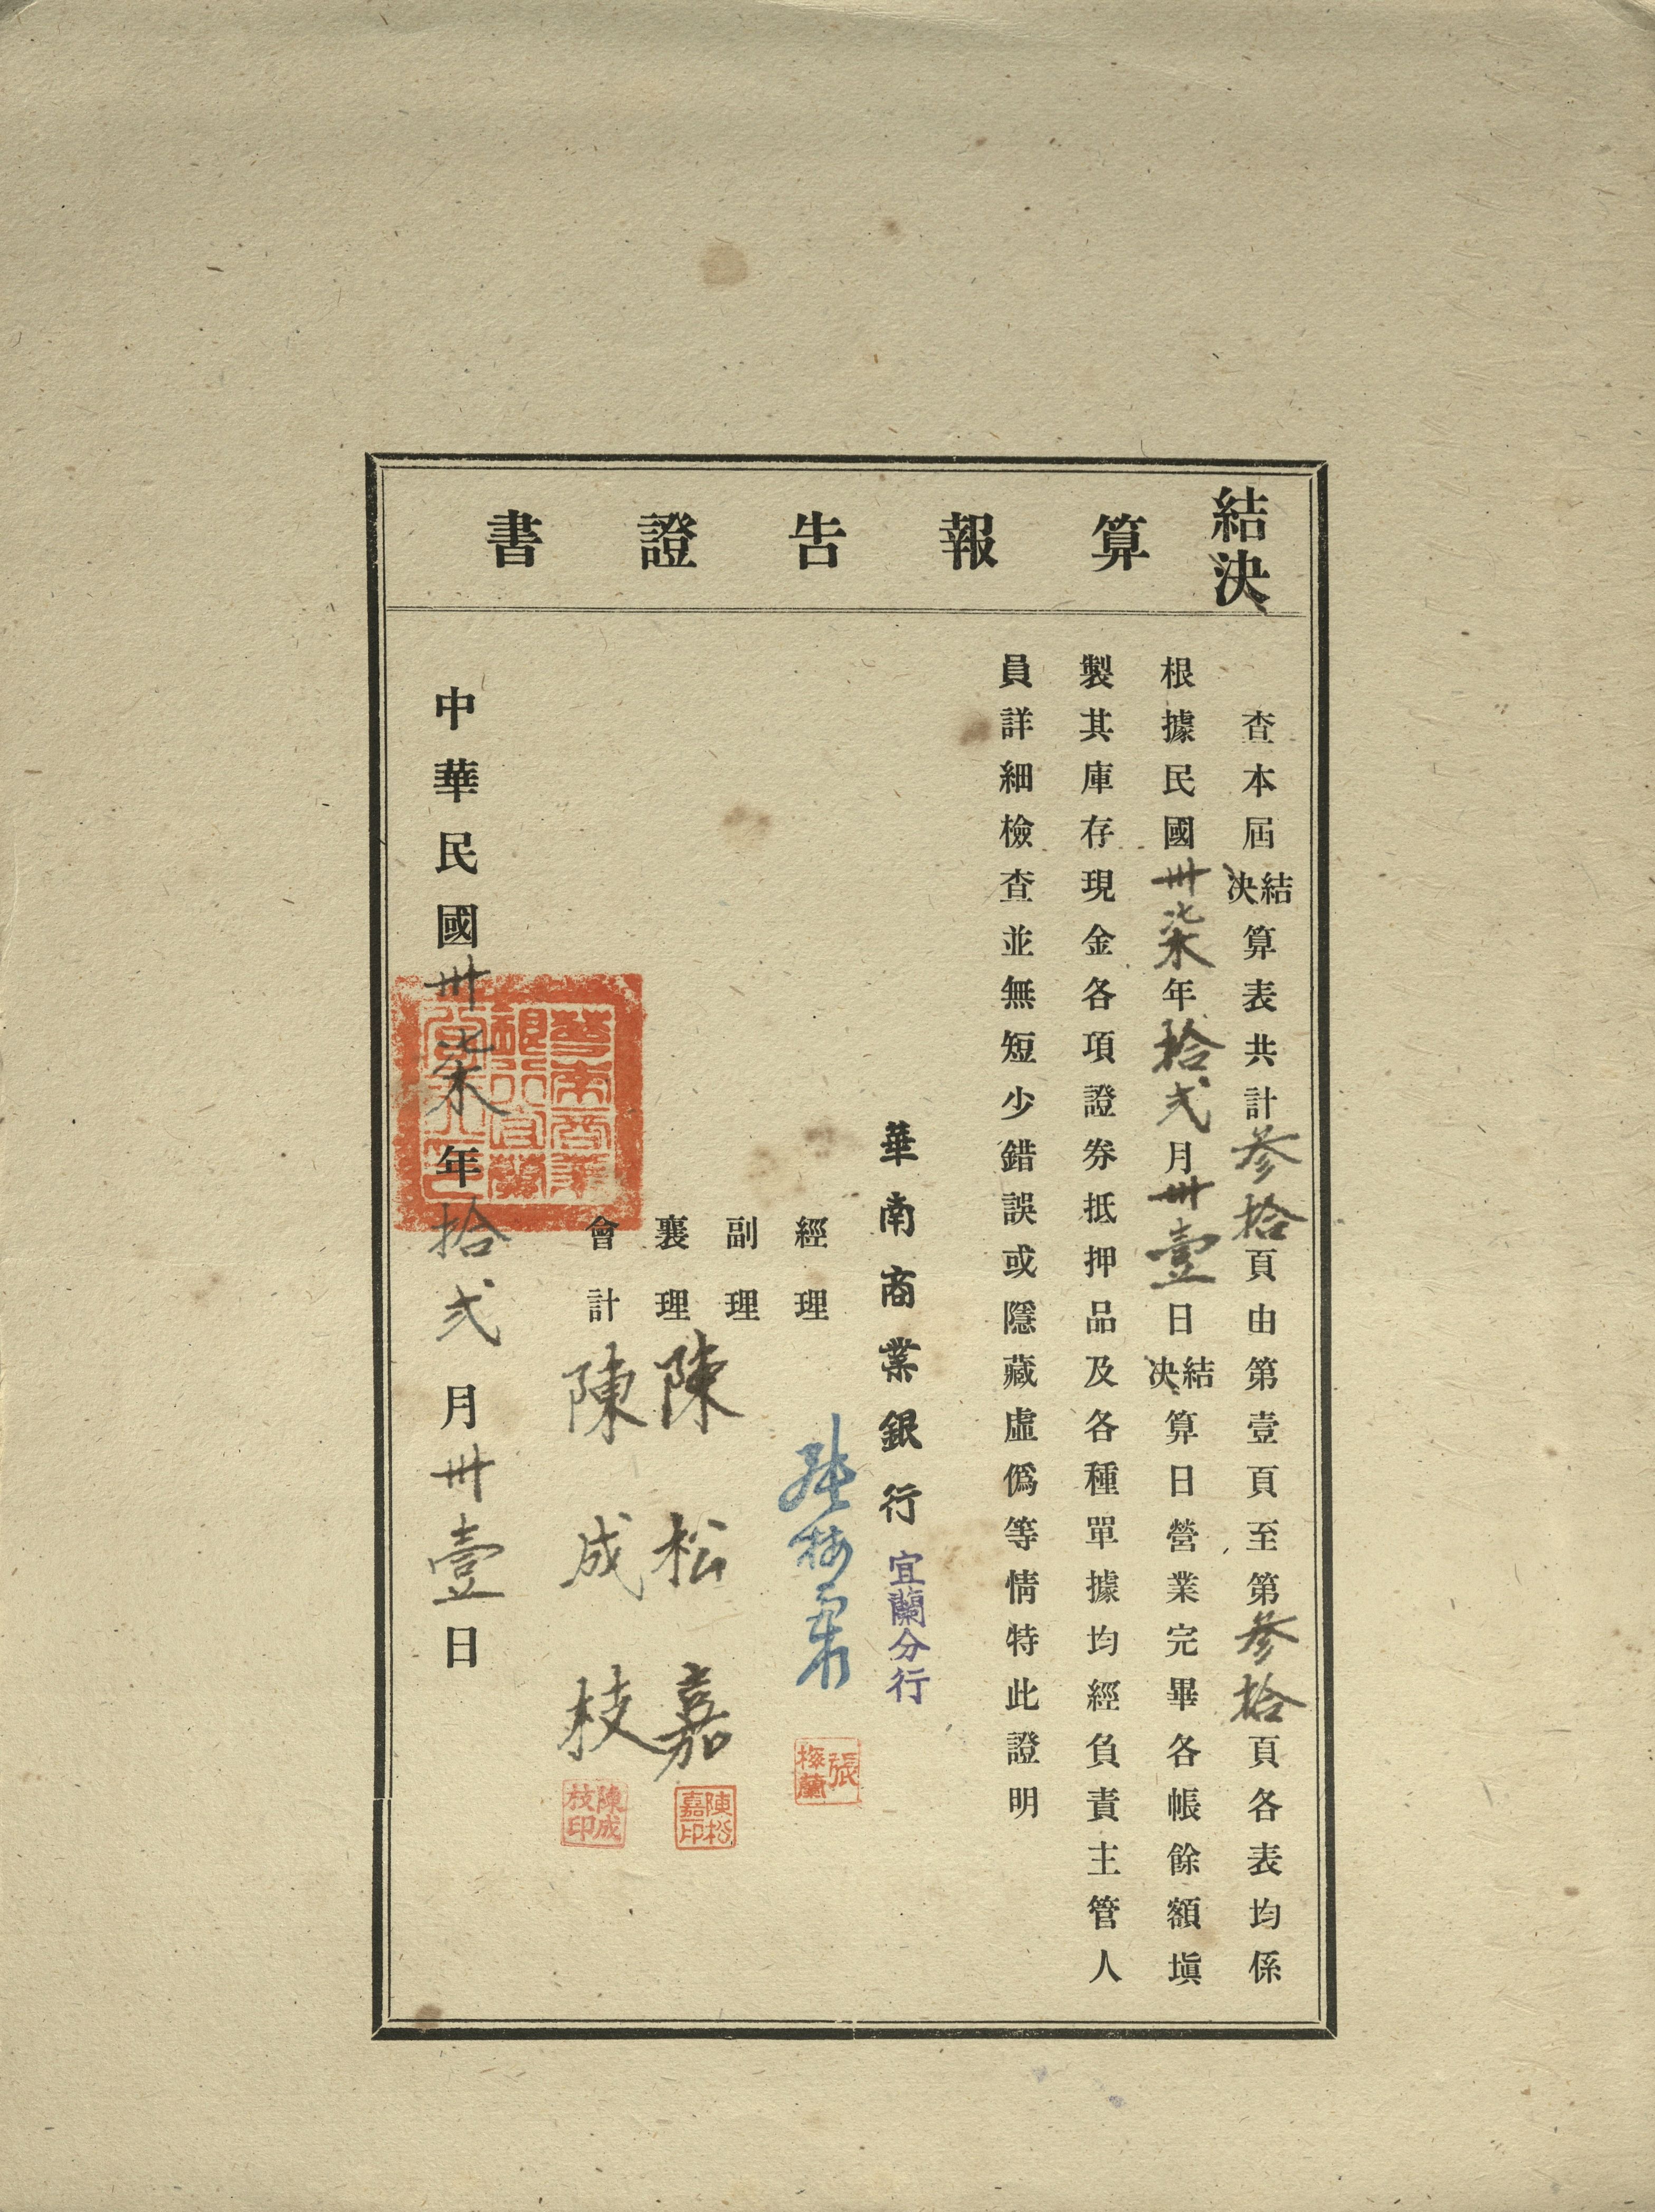 結決算報告證書
查本屆結決算表共計參拾頁由第壹頁至第參拾頁各表均係
根據民國卅柒年拾弍月卅壹日結決算日營業完畢各帳餘額塡
製其庫存現金各項證券抵押品及各種單據均經負責主管人
員詳細檢查並無短少錯誤或隱藏虛僞等情特此證明
華南商業銀行宜蘭分行
經理 張梅蘭
張梅蘭
副理
襄理 陳松嘉
陳松嘉印
會計 陳成枝
陳成枝印
中華民國卅柒年拾弍月卅壹日